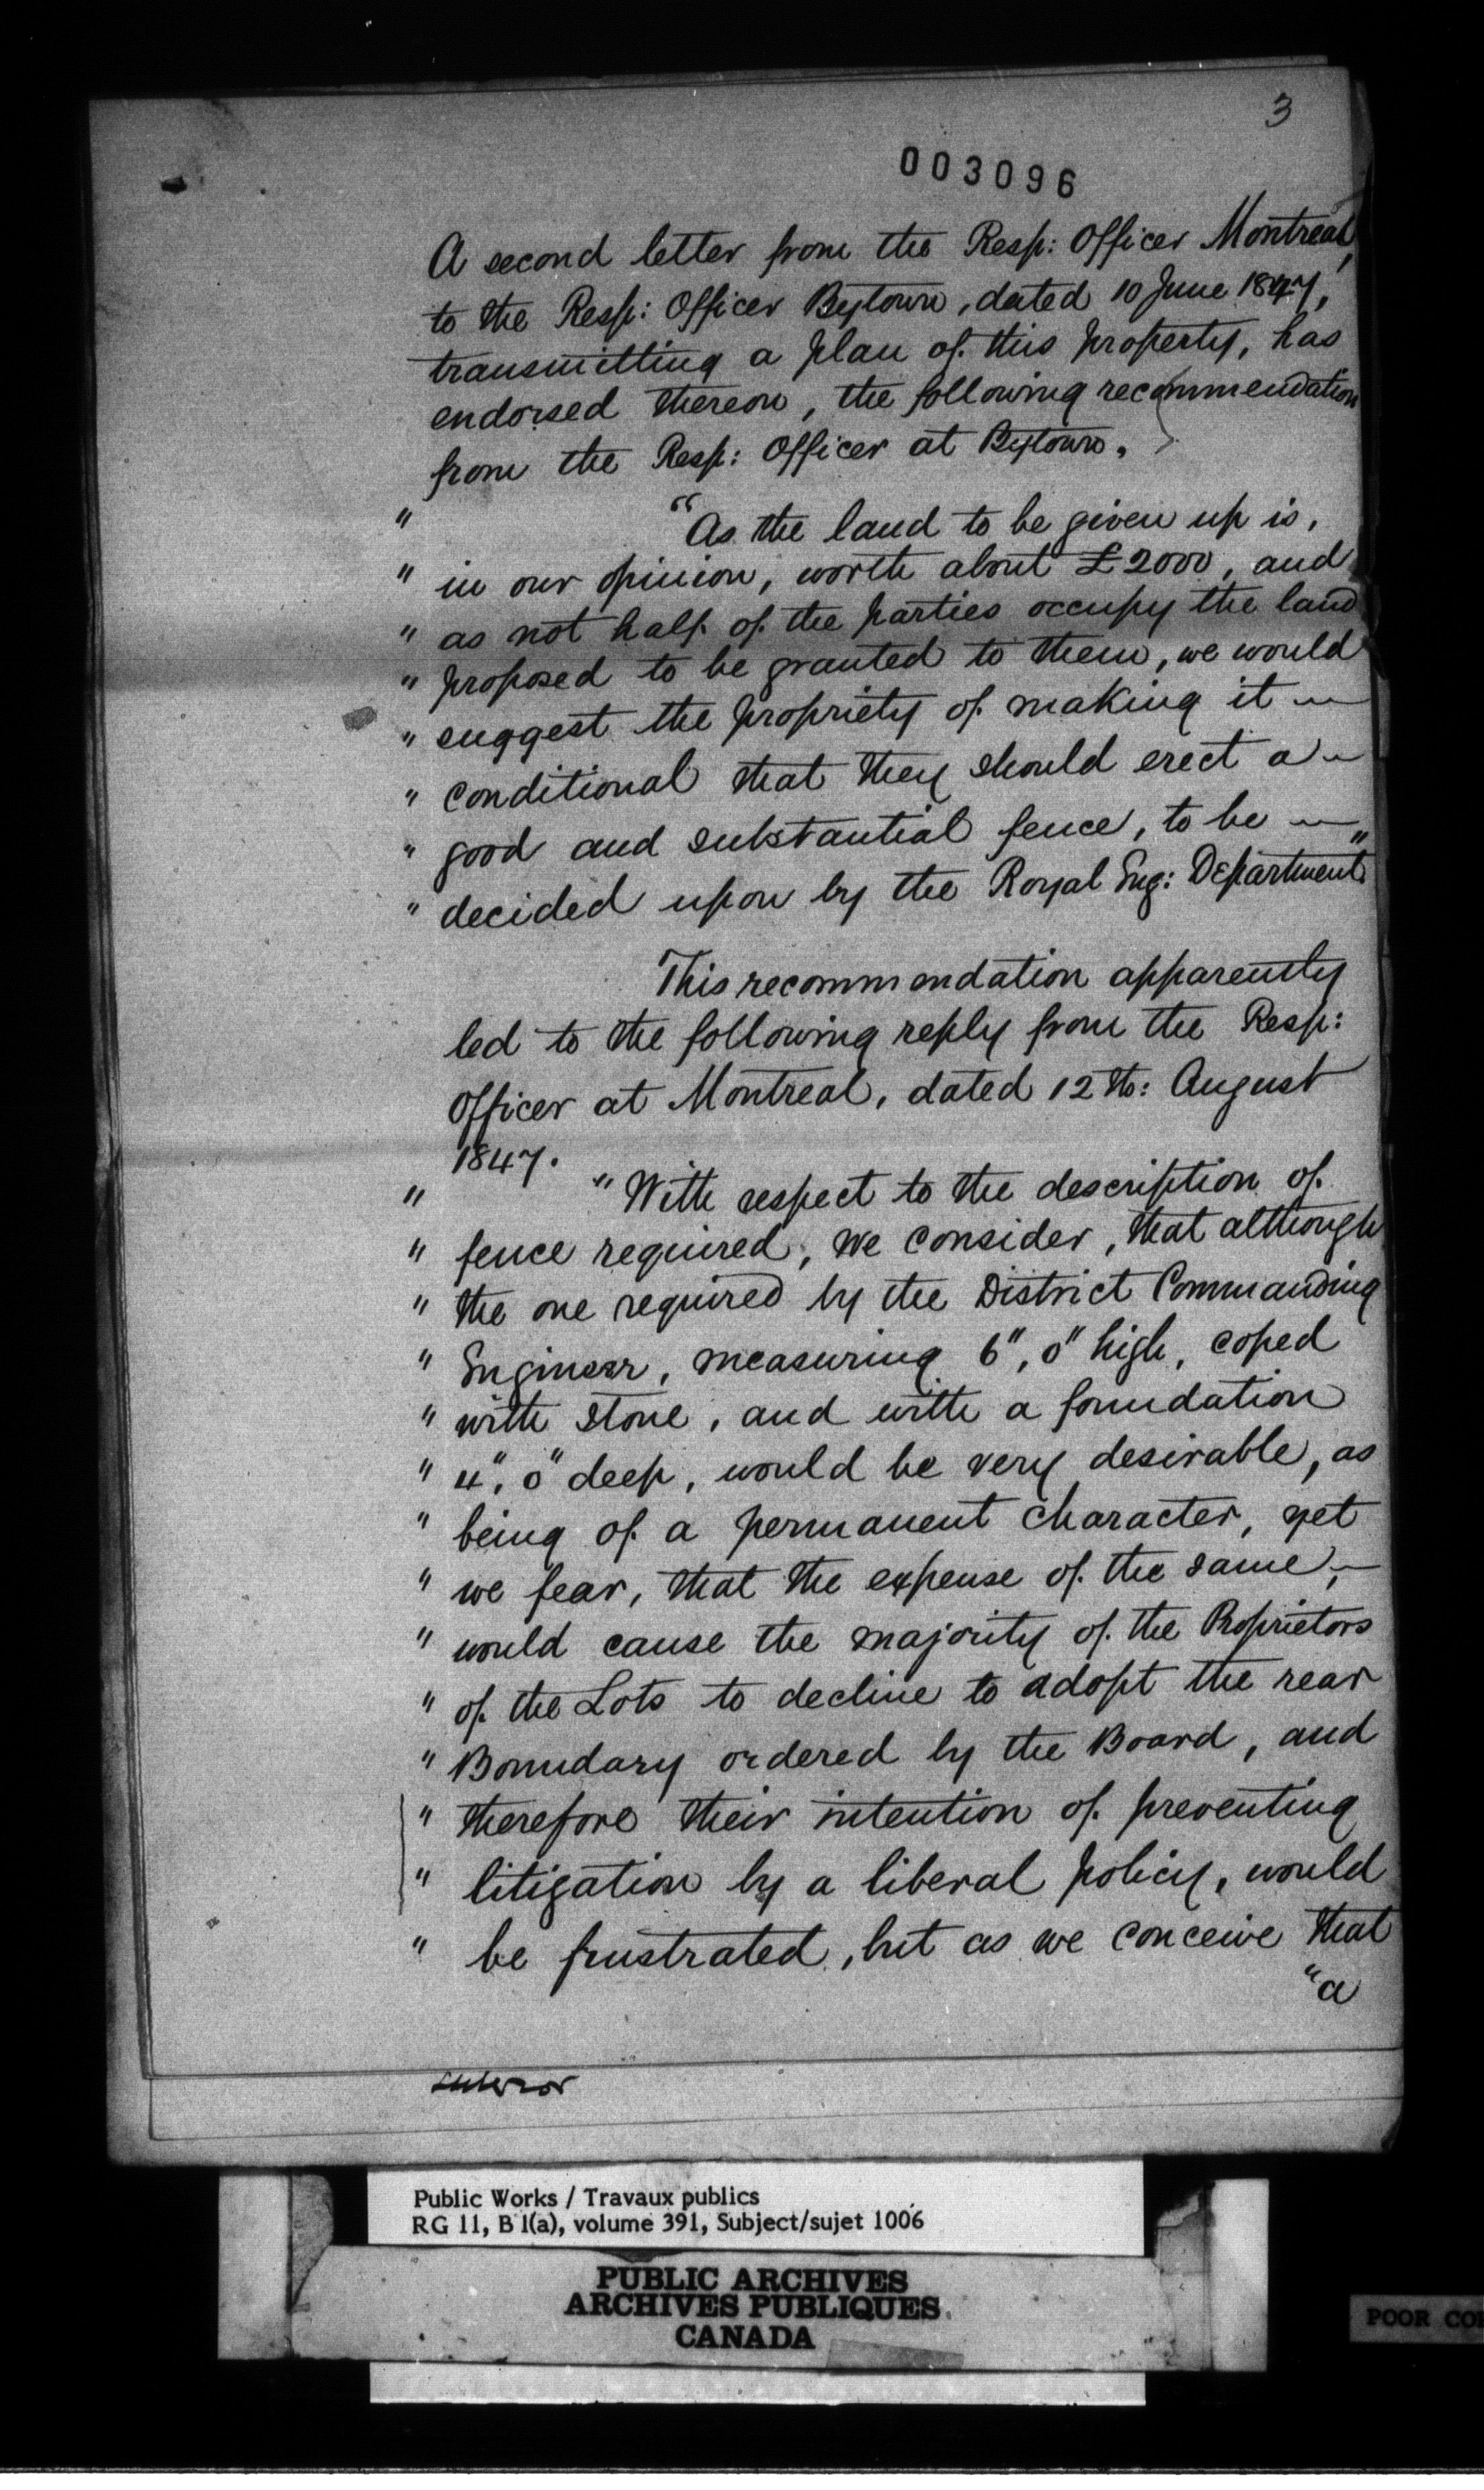 3
003096
A second letter from the Resp: Officer Montreal,
to the Resp: Officer Bytown, dated 10 June 1847,
transmitting a plan of this property, has
endorsed thereon, the following recommendation
from the Resp: Officer at Bytown.
" "As the land to be given up is,
" in our opinion, worth about £2000, and
" as not half of the parties occupy the land
" proposed to be granted to them, we would
" suggest the propriety of making it
" conditional that they should erect a
" good and substantial fence, to be
" decided upon by the Royal Eng: Department"
This recommendation apparently
led to the following reply from the Resp:
Officer at Montreal, dated 12th: August
1847.
" "With respect to the description of
" fence required, we consider, that although
" the one required by the District Commanding
" Engineer, measuring 6", 0" high, coped
" with stone, and with a foundation
" 4", 0" deep, would be very desirable, as
" being of a permanent character, yet
" we fear, that the expense of the same,
" would cause the majority of the Proprietors
" of the Lots to decline to adopt the rear
" Boundary ordered by the Board, and
" therefore their intention of preventing
" litigation by a liberal policy, would
" be frustrated, but as we conceive that
"a
Public Works / Travaux publics
RG 11, B 1(a), volume 391, Subject/sujet 1006
PUBLIC ARCHIVES
ARCHIVES PUBLIQUES
CANADA
POOR